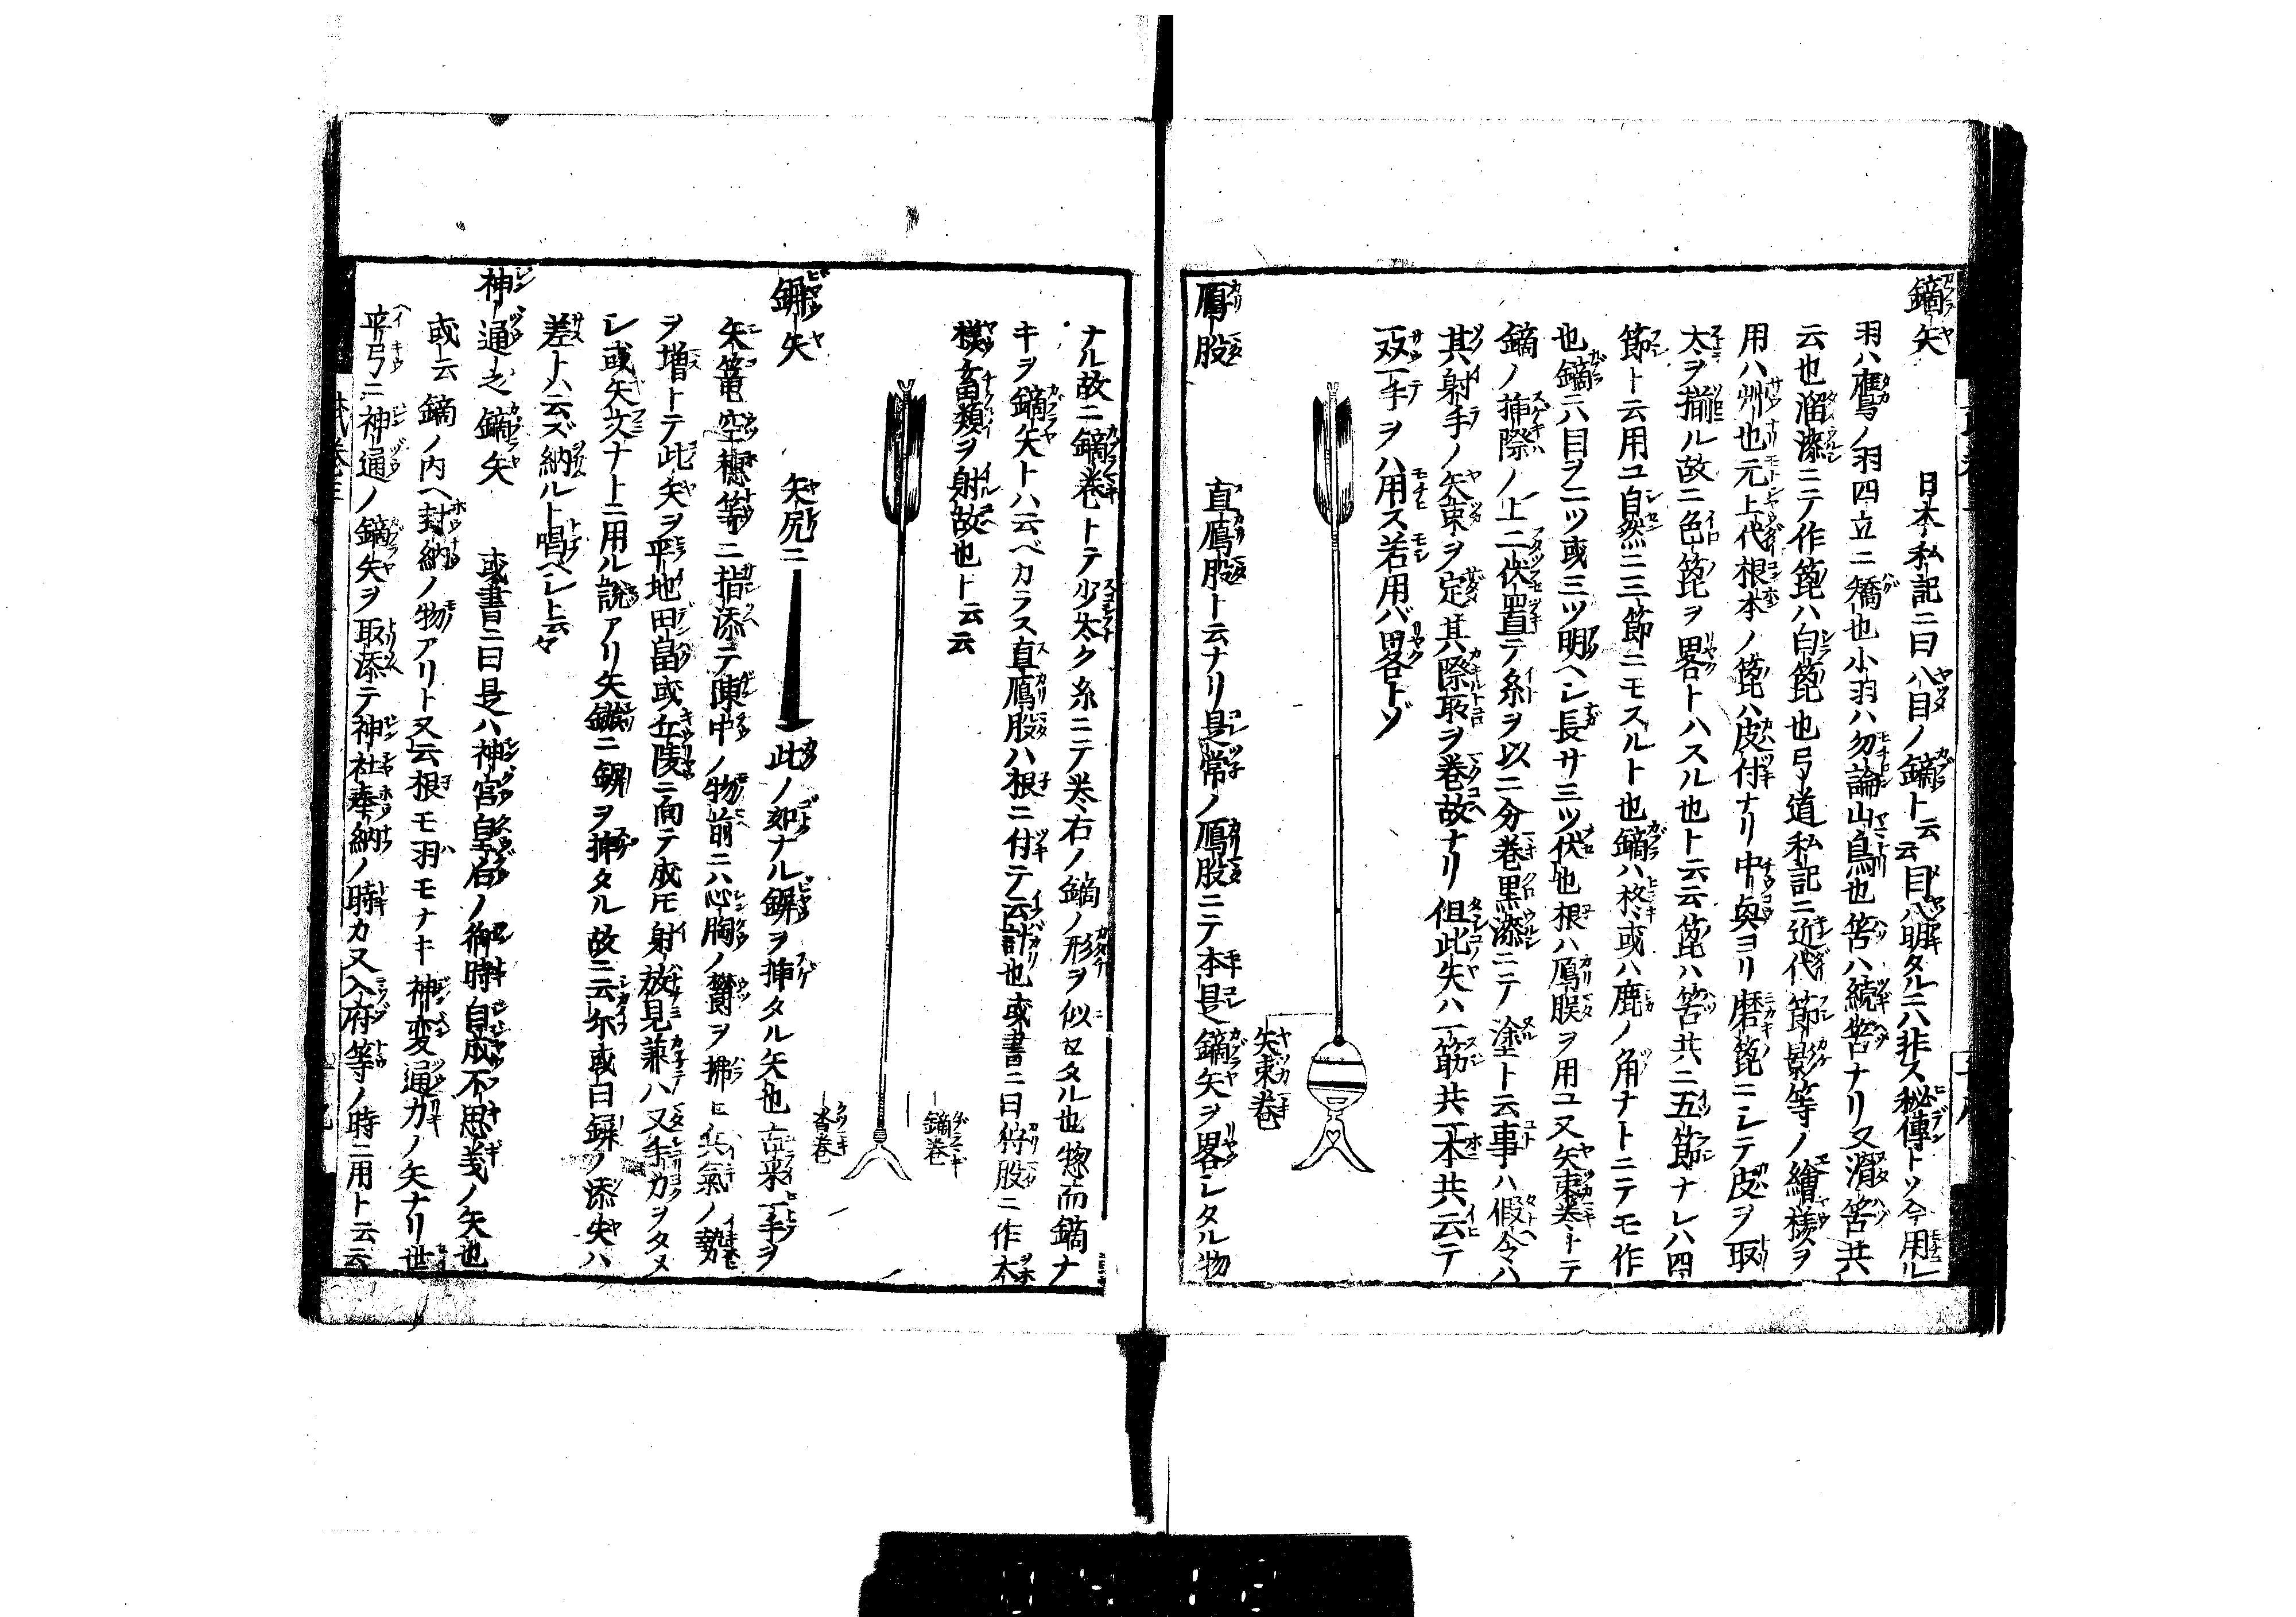 鏑矢 日本私記ニ曰八目ノ鏑ト云云目八明タルニハ非ス秘傳トソ今用ル
羽ハ鷹ノ羽四立ニ矯也小羽ハ勿論山鳥也筈ハ続筈ナリ又溜筈共
云也溜漆ニテ作箆ハ白箆也弓道私記ニ近代節影等ノ繪様ヲ
用ハ州也元上代根本ノ箆ハ皮付ナリ中奥ヨリ磨箆ニシテ皮ヲ取
太ヲ揃ル故ニ色箆ヲ畧トハスル也ト云云箆ハ筈共ニ五節ナレハ四
節ト云用ユ自然ニ三節ニモスルト也鏑ハ柊或ハ鹿ノ角ナトニテモ作
也鏑ニハ目ヲ二ツ或三ツ明ヘシ長サ三ツ伏也根ハ鳫股ヲ用ユ又矢束巻トテ
鏑ノ挿際ノ上二伏置テ糸ヲ以二分巻黒漆ニテ塗ト云事ハ假令ハ
其射手ノ矢束ヲ定其際取ヲ巻故ナリ但此矢ハ一筋共一本共云テ
双一手ヲハ用ス若用バ畧トゾ
矢束巻
鳫股 直鳫股ト云ナリ是常ノ鳫股ニテ本是鏑矢ヲ畧シタル物
ナル故ニ鏑巻トテ少太ク糸ニテ巻右ノ鏑ノ形ヲ似セタル也惣而鏑ナ
キヲ鏑矢トハ云ベカラス直鳫股ハ根ニ付テ云計也或書ニ曰狩股ニ作本
様畜類ヲ射故也ト云云
鏑巻
沓巻
矢 矢尻ニ此ノ如ナルヲ挿タル矢也古来一手ヲ
矢篭空穂等ニ指添テ陳中ノ物前ニハ心胸ノ欝ヲ拂ヒ兵氣ノ勢
ヲ増トテ此矢ヲ平地田畠或丘陵ニ向テ成モ射放見兼ハ又手カヲタメ
シ或矢文ナトニ用ル説アリ矢ニヲ挿タル故ニ云尓或曰ノ添矢ハ
差トハ云ズ納ルト唱ベシト云々
神通之鏑矢 或書ニ曰是ハ神宮皇后ノ御時自成不思義ノ矢也
或云鏑ノ内ヘ封納ノ物アリト又云根モ羽モナキ神変通力ノ矢ナリ世
平弓ニ神通ノ鏑矢ヲ取添テ神社奉納ノ時カ又入府等ノ時ニ用ト云云